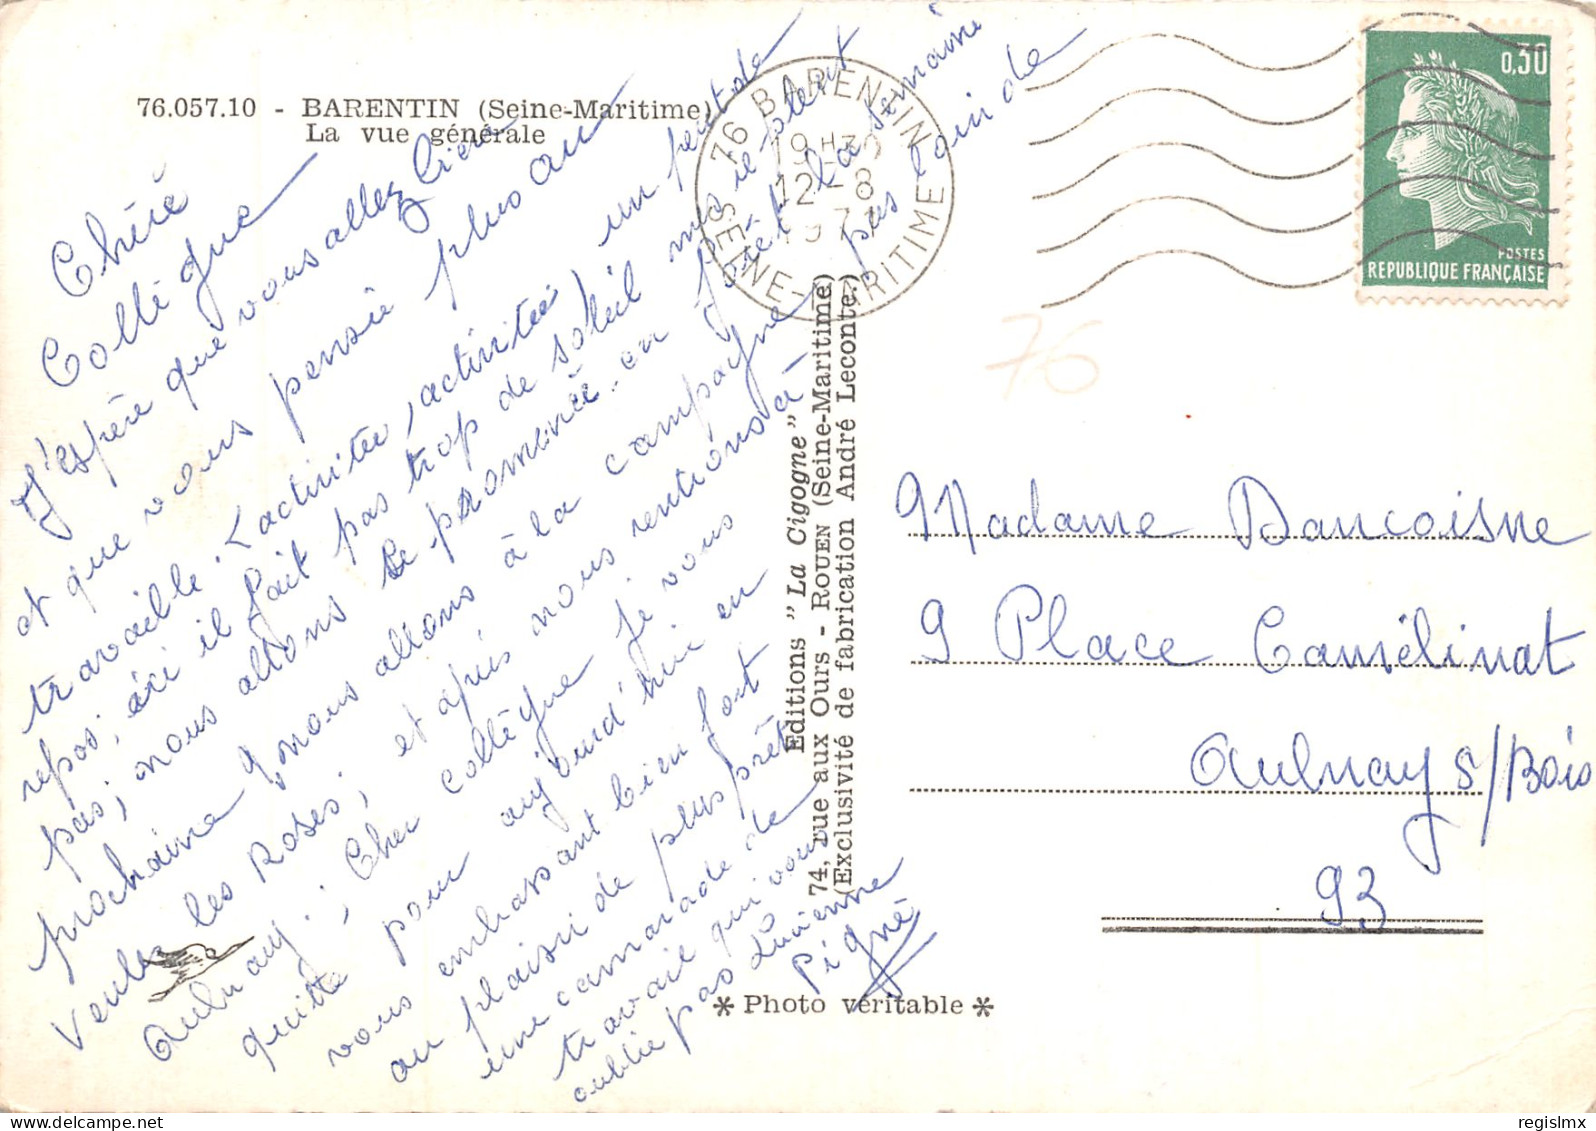 76.057.10 - BARENTIN (Seine-Maritime)
La vue générale
Chéré
Collègue
J'espère que vous allez bien
et que vous pensiè plus au
travaille. L'activitée, activitée, un peut de
repos, ici il fait pas trop de soleil mais il pleut
pas, nous allons se proméné en forêt la semaine
prochaine, nous allons à la campagne pas loin de
Veule les Roses, et après nous rentrons à
Aulnay; Cher collègue je vous
quitte pour aujourd'hui en
vous embrassant bien fort
au plaisir de plus prêt
une camarade de
travail qui vous
oublie pas Lucienne
Pigné
76 BARENTIN
SEINE-MARITIME
19H30
12-8
197
0,30
POSTES
REPUBLIQUE FRANÇAISE
76
Editions "La Cigogne"
74, rue aux Ours - ROUEN (Seine-Maritime)
(Exclusivité de fabrication André Leconte.)
Madame Dancoisne
9 Place Camélinat
Aulnay s/Bois
93
* Photo véritable *
regislmx